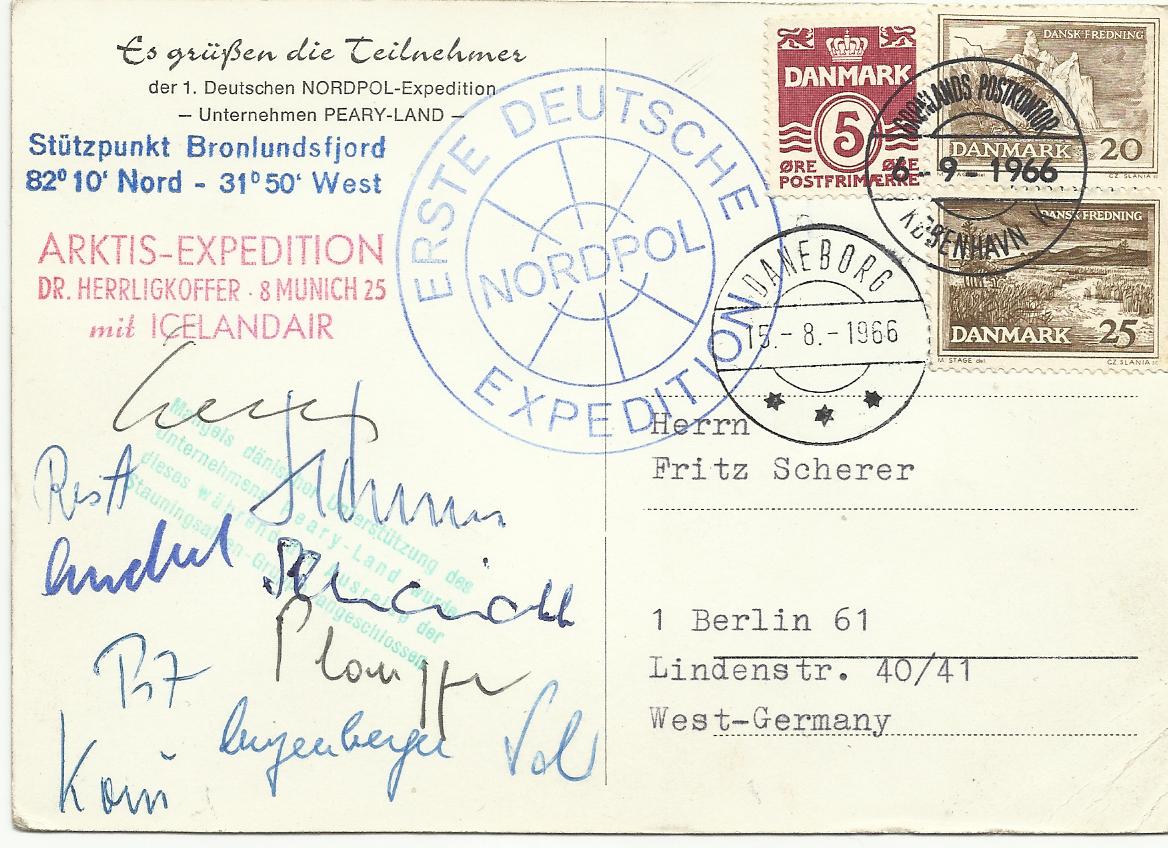 Es grüßen die Teilnehmer
der 1. Deutschen NORDPOL-Expedition
— Unternehmen PEARY-LAND —
Stützpunkt Bronlundsfjord
82º 10' Nord - 31º 50' West
ARKTIS-EXPEDITION
DR. HERRLIGKOFFER · 8 MUNICH 25
mit ICELANDAIR
ERSTE DEUTSCHE
NORDPOL
EXPEDITION
DANMARK
5
ØRE ØRE
POSTFRIMÆRKE
DANSK FREDNING
DANMARK 20
CZ. SLANIA
GRØNLANDS POSTKONTOR
6-9-1966
KØBENHAVN
DANSK FREDNING
DANMARK 25
M. STAGE del
CZ. SLANIA
DANEBORG
15.-8.-1966
Mangels dänischer Unterstützung des
Unternehmens Peary-Land wurde
dieses während der Ausreise der
Stauningsalpen-Gruppe angeschlossen
Herrn
Fritz Scherer
1 Berlin 61
Lindenstr. 40/41
West-Germany